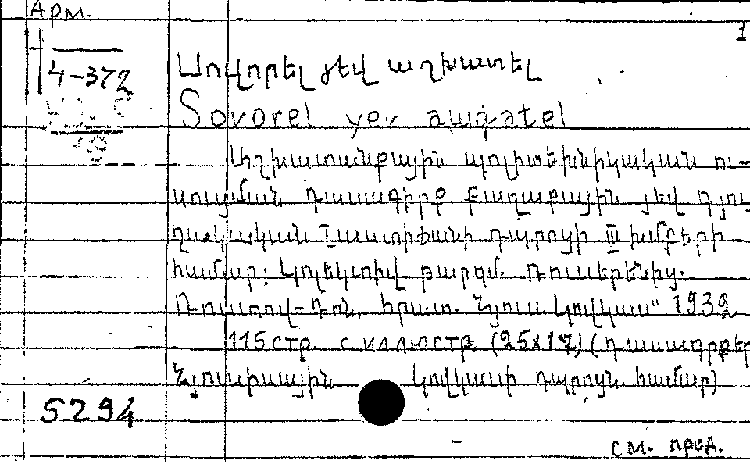 Арм.
1
4-372
Սովորել յեվ աշխատել
Sovorel yev ašxatel
Աշխատանքային պոլիտեխնիկական ու-
սուցման դասագիրք քաղաքային յեվ գյու
ղական I աստիճանի դպրոցի III խմբերի
համար: Կոլեկտիվ թարգմ. Ռուսերենից.
Ռոստով-Դոն, հրատ. Հյուս Կովկաս" 1932
115 стр. с иллюстр. (25х17) (դասագրքեր
Հյուսիսային Կովկասի դպրոցն համար)
5294
см. пред.